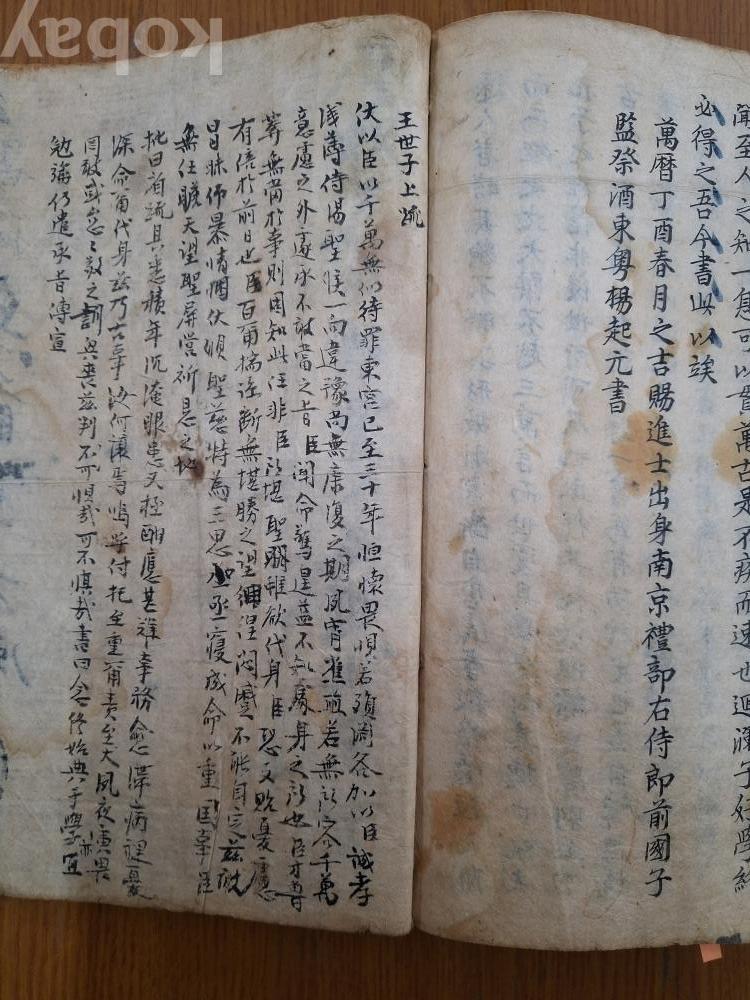 聞至人之知一焦可以旨萬古是不疾而速也迴瀾子好學終
必得之吾今書此以俟
萬曆丁酉春月之吉賜進士出身南京禮部右侍郎前國子
監祭酒東粤楊起元書
王世子上疏
伏以臣以千萬無似待罪東宮已至三十年恒懷畏惧若殞淵谷加以臣誠孝
淺薄侍湯聖候一向違豫尚無康復之期夙宵進 若無所容千萬
意慮之外遽承不敢當之旨臣聞命驚遑益不知處身之所也臣才
等無當於事則固知此任非臣所堪聖朝雖欲代身臣恐又貽憂
有倍於前日也臣百爾揣 斷無堪勝之望 不能自定玆敢
冒昧佈暴情悃伏惧聖慈特為三思亟寢成命以重国事臣
無任瞻天望聖屏營祈恳之地
批曰省疏具悉積年沉淹眼患又極酬應甚難事務愈滯病裡
深命爾代身玆乃古事汝何讓焉嗚呼付托至重爾責至大夙夜寅畏
罔敢或怠怠敬之訓與喪玆判不可惧哉可不慎哉書曰念終始典于學亦宜
勉旃仍遣承旨傳宣
kobay